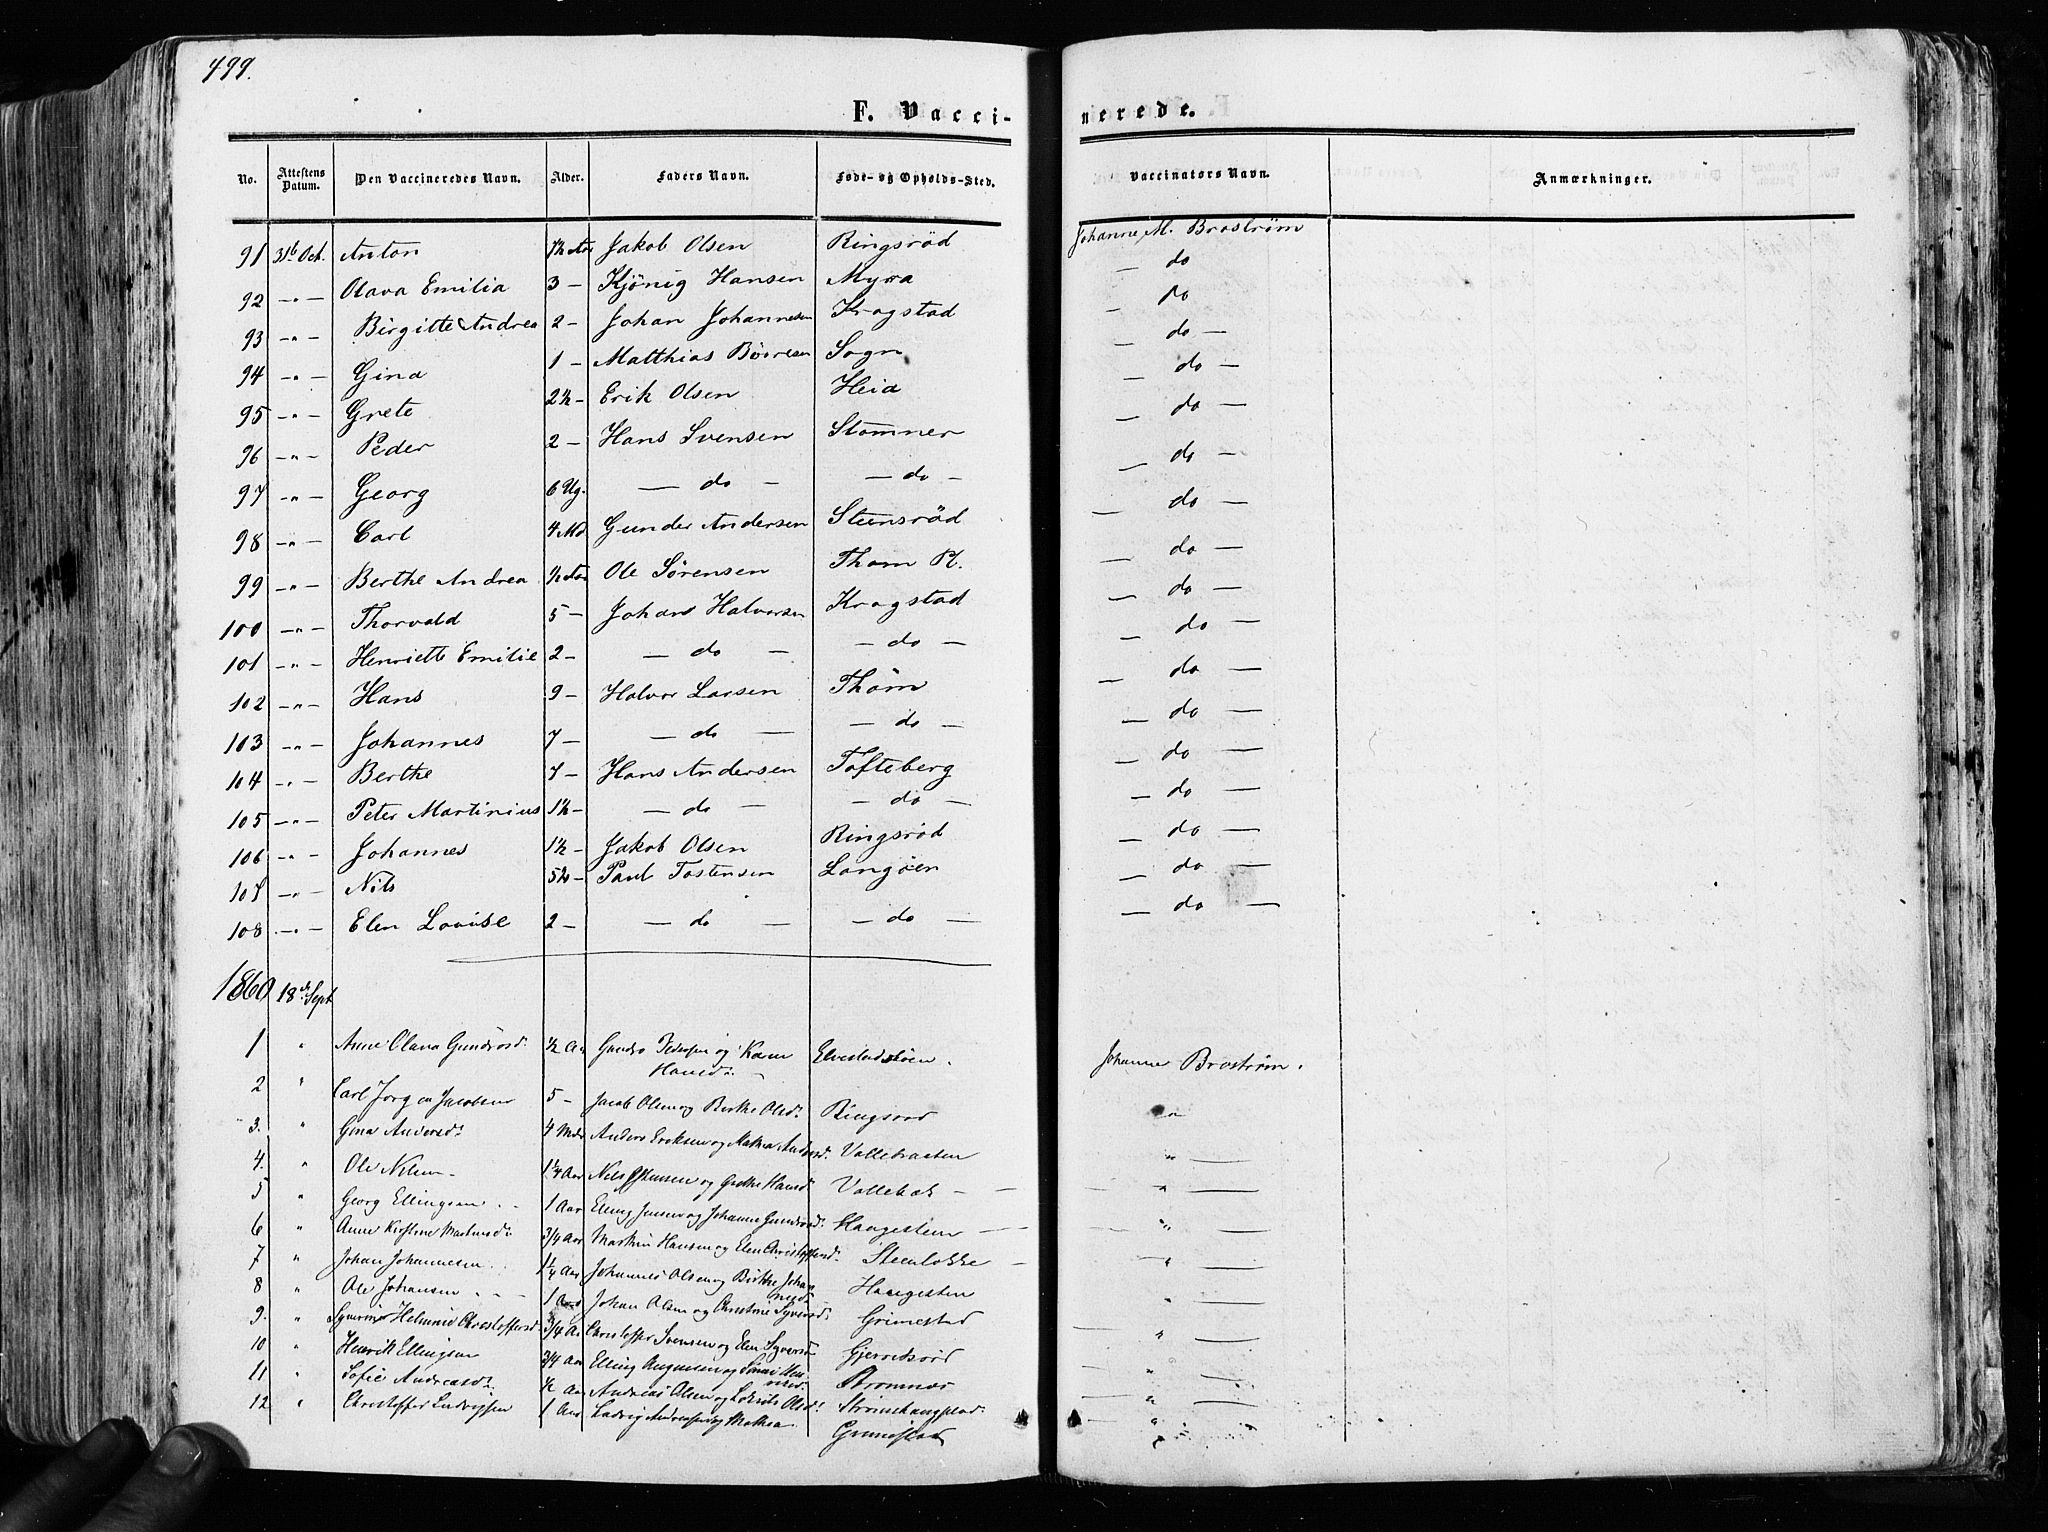 499.
F. Vacci-
nerede.
No. Attestens Datum. Den Vaccineredes Navn. Alder. Faders Navn. Føde- og Opholds-Sted. Vaccinators Navn. Anmærkninger.
91 31te Oct. Anton 7½ Aar Jakob Olsen Ringsröd Johanne M. Broström
92 -"- Olava Emilia 3 - Kjönig Hansen Myra — do
93 -"- Birgitte Andrea 2 - Johan Johannesen Krogstad — do
94 -"- Gina 1 - Matthias Börresen Sogn — do —
95 -"- Grete 2½ - Erik Olsen Heia — do —
96 -"- Peder 2 - Hans Svensen Stomner — do —
97 -"- Georg 6 Ug. — do — — do — — do —
98 -"- Carl 4 Md Gunder Andersen Steensröd — do —
99 -"- Berthe Andrea ½ Aar Ole Sörensen Thom Pl. — do —
100 -"- Thorvald 5 - Johan Halvorsen Krogstad — do —
101 -"- Henriette Emilie 2 - — do — — do — — do —
102 -"- Hans 9 - Halvor Larsen Thom — do —
103 -"- Johannes 7 - — do — — do — — do —
104 -"- Berthe 7 - Hans Andersen Tofteberg — do —
105 -"- Peter Martinius 1½ - — do — — do — — do —
106 -"- Johannes 1½ - Jakob Olsen Ringsröd — do —
107 -"- Nils 5½ - Paul Tostensen Langöen — do —
108 -"- Elen Lovise 2 - — do — — do — — do —
1860 18d Sept
1 " Anne Olava Gundrosd. ½ Aar Gundro Pedersen og Karen Hansd. Johanne Broström.
2 " Carl Jörgen Jacobsen 5 - Jacob Olsen og Birthe Olsd. Ringsrod "
3. " Gina Andersd. 4 Mdr Anders Eriksen og Mathea Andersd. "
4. " Ole Nilsen 1¼ Aar Nils og Grethe Hansd. Vollebæk "
5 " Georg Ellingsen 1 Aar Elling Jensen og Johanne Gundrosd. Haugesten "
6 " Anne Kirstine Martinsd. 3/4 Aar Martin Hansen og Elen Christoffersd. Steenlökke "
7 " Johan Johannesen 1¼ Aar Johannes Olsen og Birthe Johannesd. Haugesten "
8 " Ole Johansen 1 Aar Johan Olsen og Christine Syversd. Grimestad "
9. " Helmine Christoffersd. 3/4 Aar Christoffer Svensen og Elen Syversd. "
10 " Henrik Ellingsen 3/4 Aar Elling Augunsen og "
11 " Sofie Andreasd. ½ Aar Andreas Olsen og Olsd. "
12 " Christoffer Ludvigsen 1 Aar Ludvig Andersen og Mathea Grimestad "